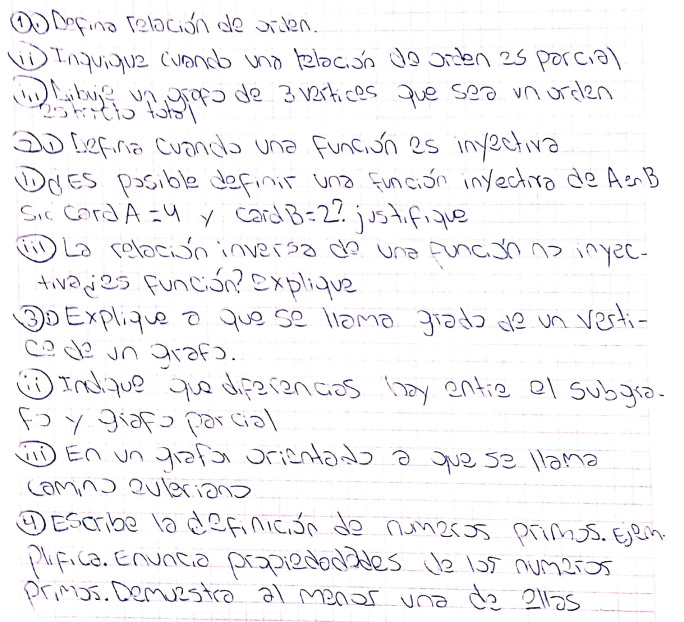 ① i) Defina relación de orden.
ii) Inquique cuando una relación de orden es parcial
iii) Dibuje un grafo de 3 vertices que sea un orden
estricto total
② i) Defina cuando una función es inyectiva
ii) ¿Es posible definir una función inyectiva de A en B
si: Card A = 4 y Card B = 2? justifique
iii) La relación inversa de una función no inyec-
tiva ¿es función? explique
③ i) Explique a que se llama grado de un verti-
ce de un grafo.
ii) Indique que diferencias hay entre el subgra-
fo y grafo parcial
iii) En un grafo orientado a que se llama
camino euleriano
④ Escribe la definición de numeros primos. Ejem-
plifica. Enuncia propiedades de los numeros
primos. Demuestra al menos una de ellas